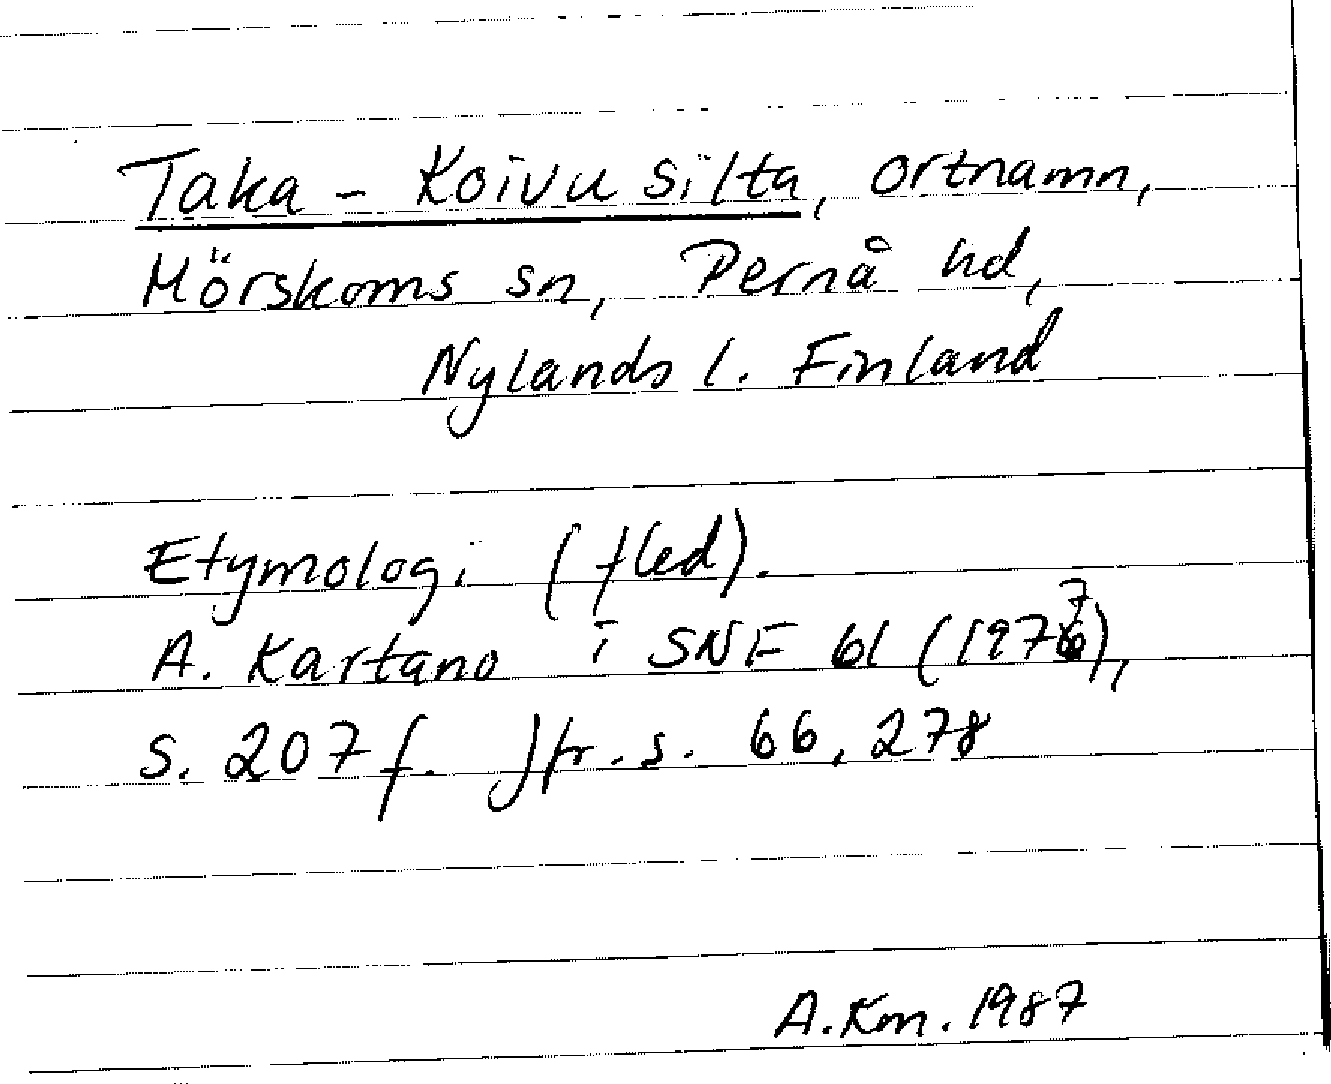 Taka-Koivusilta, ortnamn,
Mörskoms sn, Pernå hd,
Nylands l. Finland
Etymologi (fled).
A. Kartano i SNF 61 (1977),
s. 207 f. Jfr. s. 66, 278
A.Km. 1987